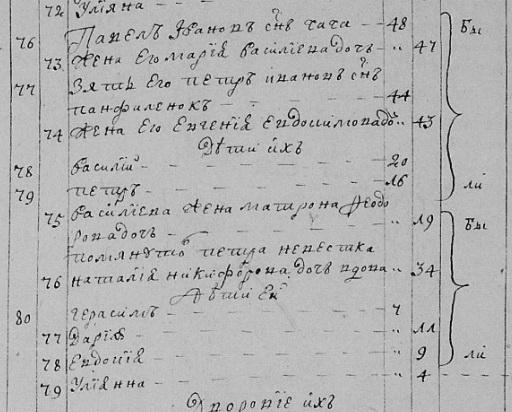 72 Улїяна
76 Павелъ Ивановъ снъ чача 48
73 Жена Его марїя василїева дочь 47
77 Зять Его петръ ивановъ снъ
панфиленокъ 44
74 Жена Его Евгенїя Евдокимова до 43
Дѣти ихъ
78 Василїй 20
79 петръ 16
75 Василїева жена матирона Федо
рова дочь 19
петра невестка
76 наталїя никифорова дочь вдова 34
Дѣти Ея
80 герасимъ 7
77 Дарїя 11
78 Евдокїя 9
79 Улїянна 4
Дворовїе ихъ